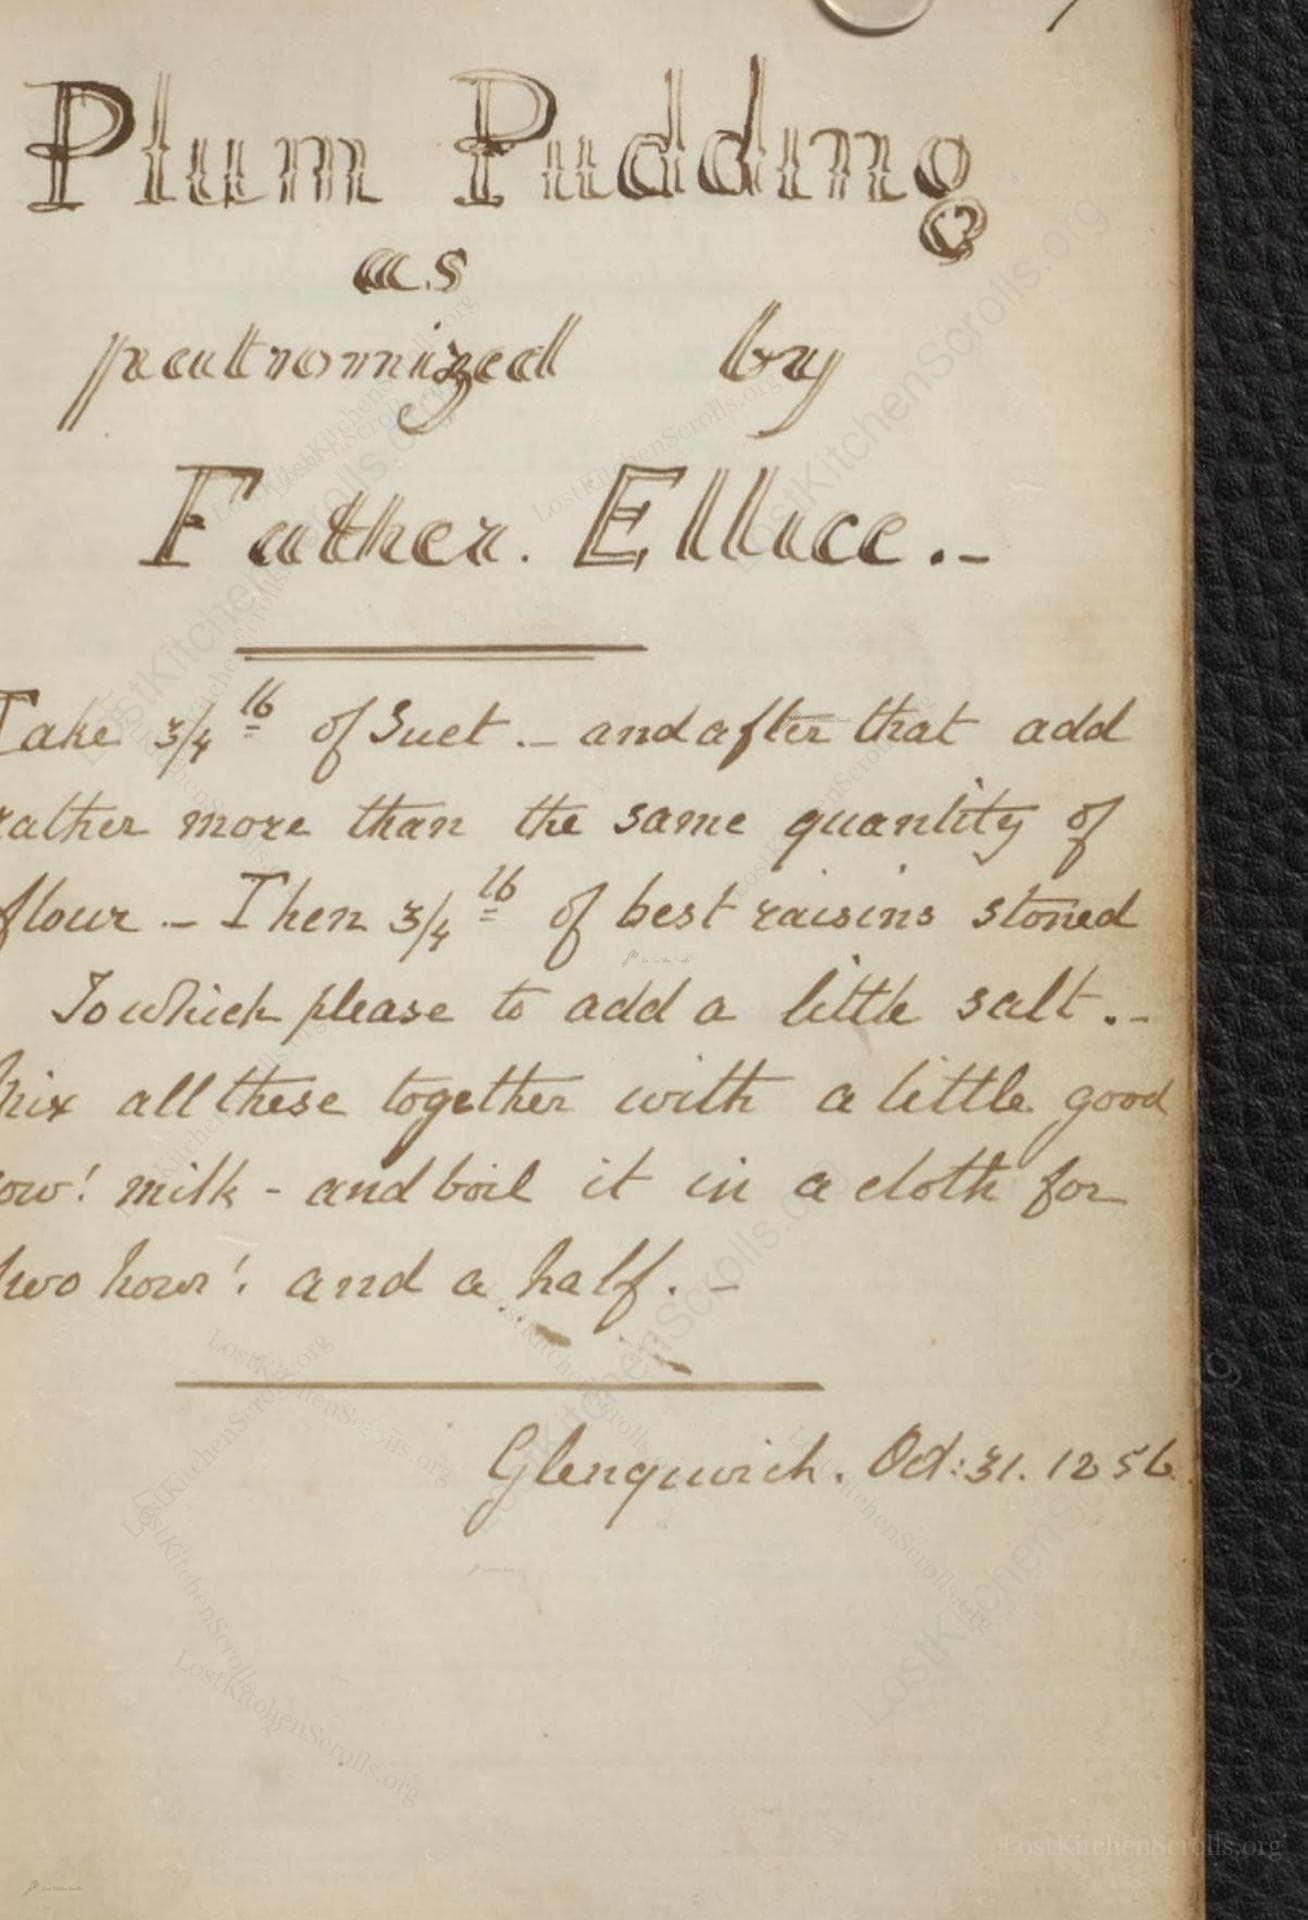 Plum Pudding
as
patronized by
Father. Ellice.-
Take 3/4 lb of Suet.- and after that add
rather more than the same quantity of
flour.- Then 3/4 lb of best raisins stoned
To which please to add a little salt.-
Mix all these together with a little good
cow! milk - and boil it in a cloth for
two hour! and a half.-
Glenquoich. Oct: 31. 1856.
LostKitchenScrolls.org